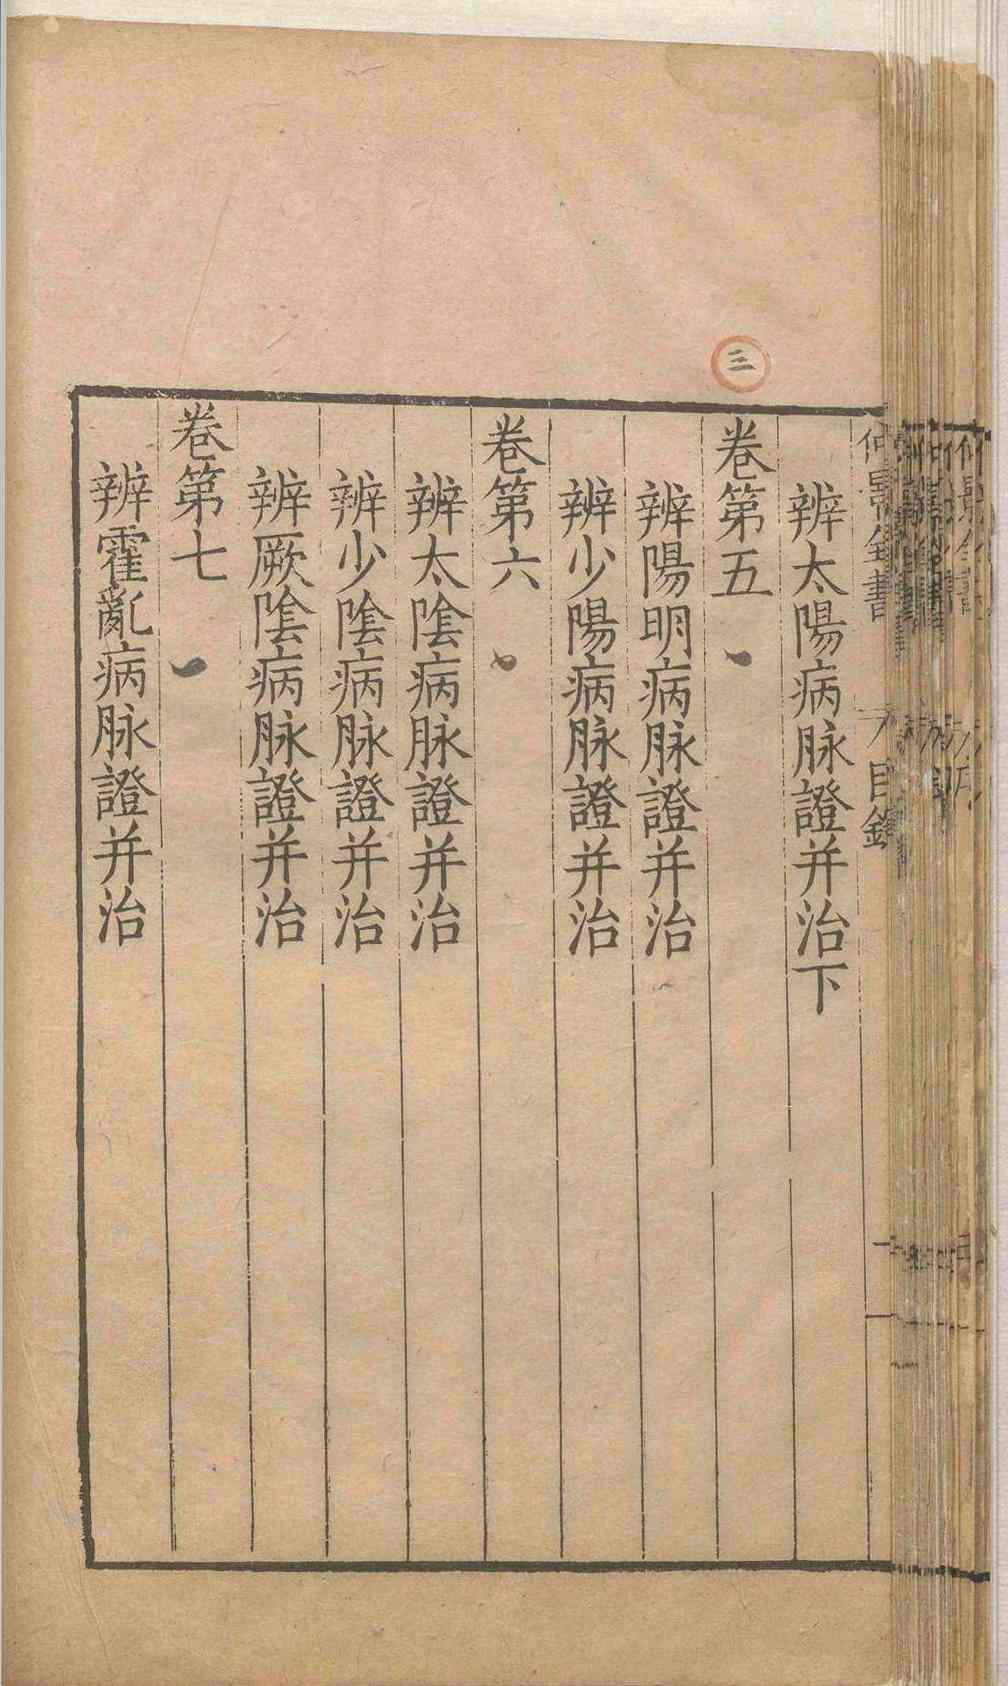 三
仲景全書 目錄
辨太陽病脉證并治下
卷第五
辨陽明病脉證并治
辨少陽病脉證并治
卷第六
辨太陰病脉證并治
辨少陰病脉證并治
辨厥陰病脉證并治
卷第七
辨霍亂病脉證并治